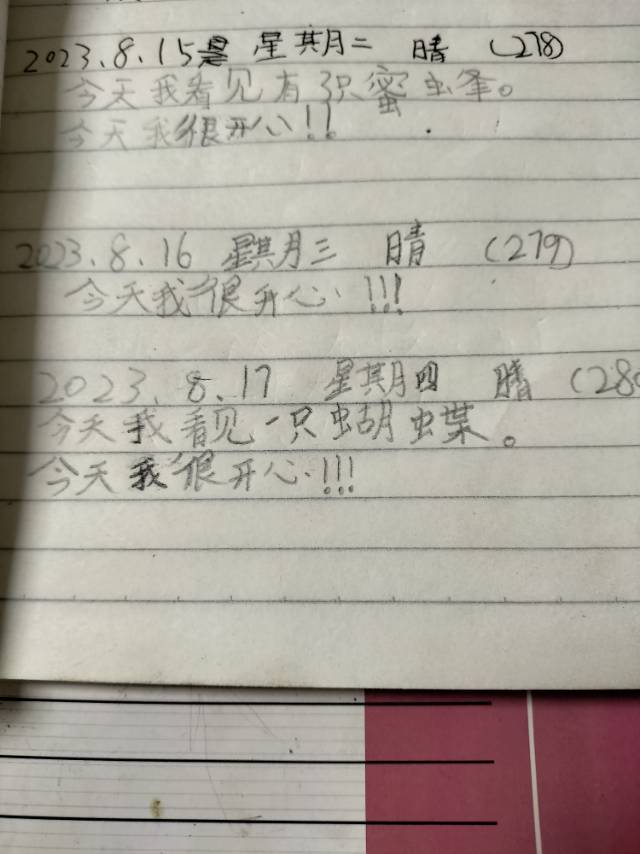 2023.8.15 星期二 晴 (278)
今天我看见有3只蜜蜂。
今天我很开心!!
2023.8.16 星期三 晴 (279)
今天我很开心!!!
2023.8.17 星期四 晴 (280
今天我看见一只蝴蝶。
今天我很开心!!!